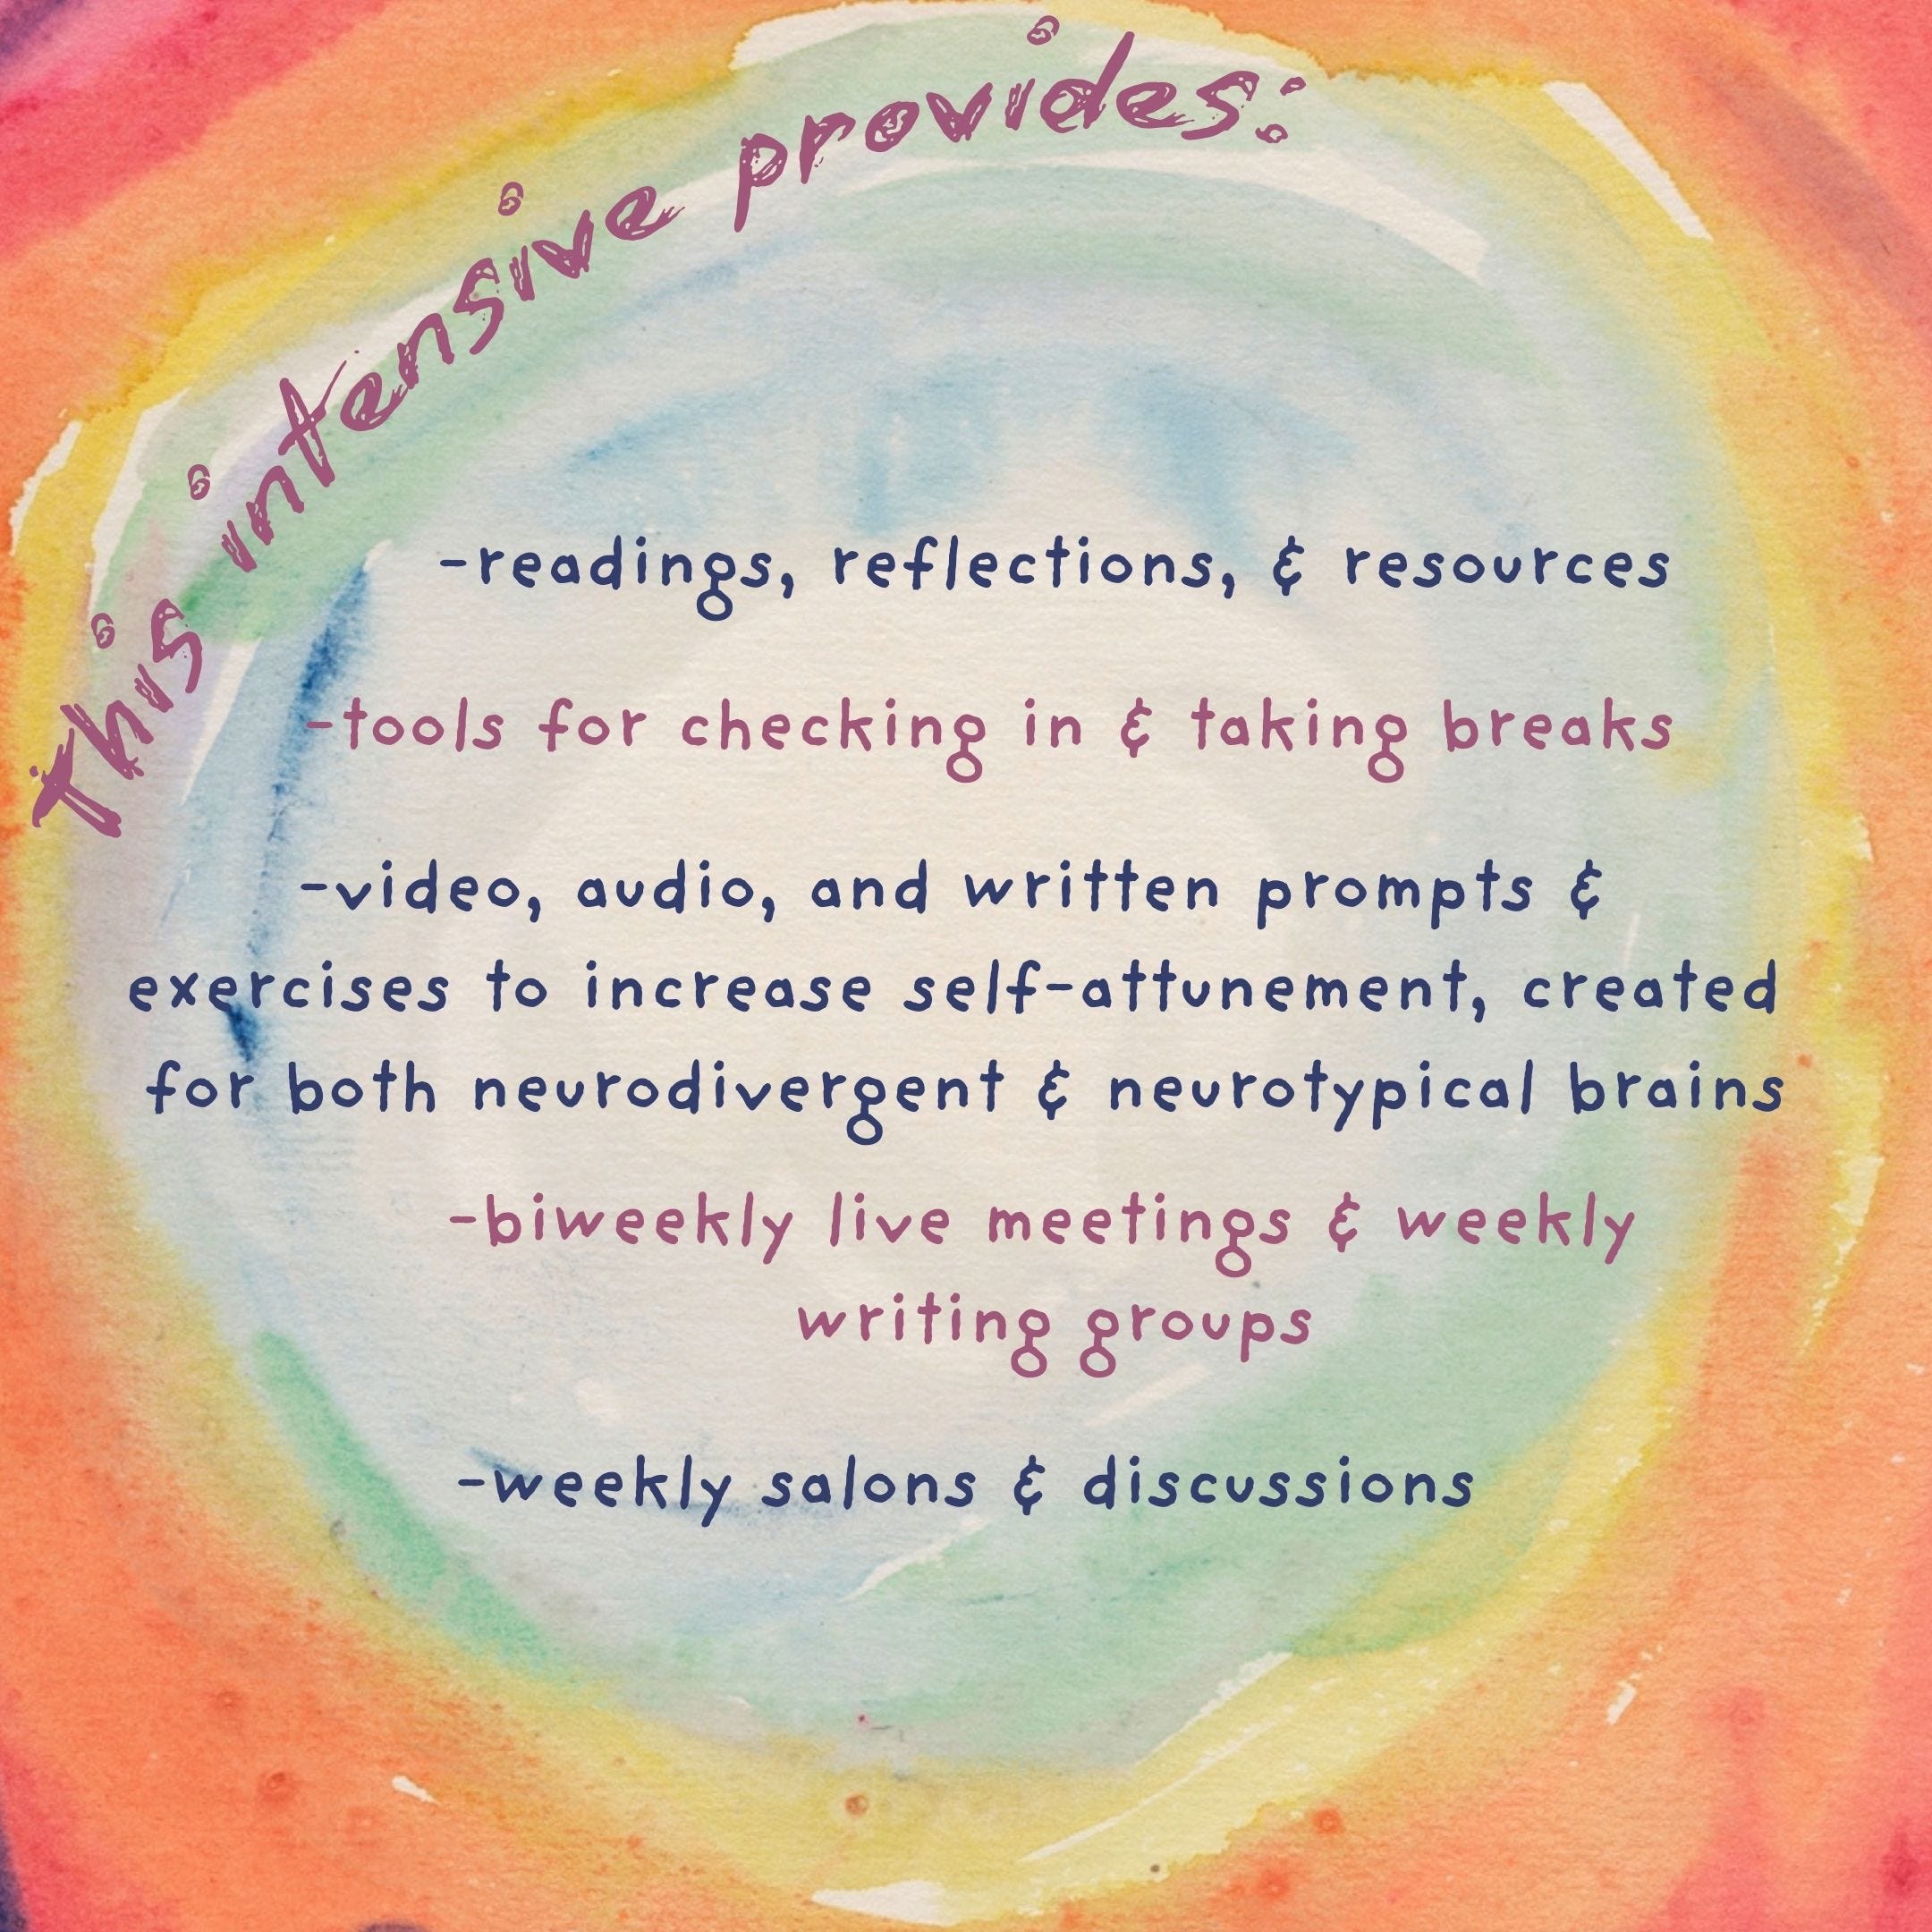 This intensive provides:
-readings, reflections, & resources
-tools for checking in & taking breaks
-video, audio, and written prompts &
exercises to increase self-attunement, created
for both neurodivergent & neurotypical brains
-biweekly live meetings & weekly
writing groups
-weekly salons & discussions